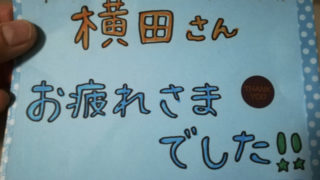 横田さん
お疲れさま
THANK YOU
でした!!